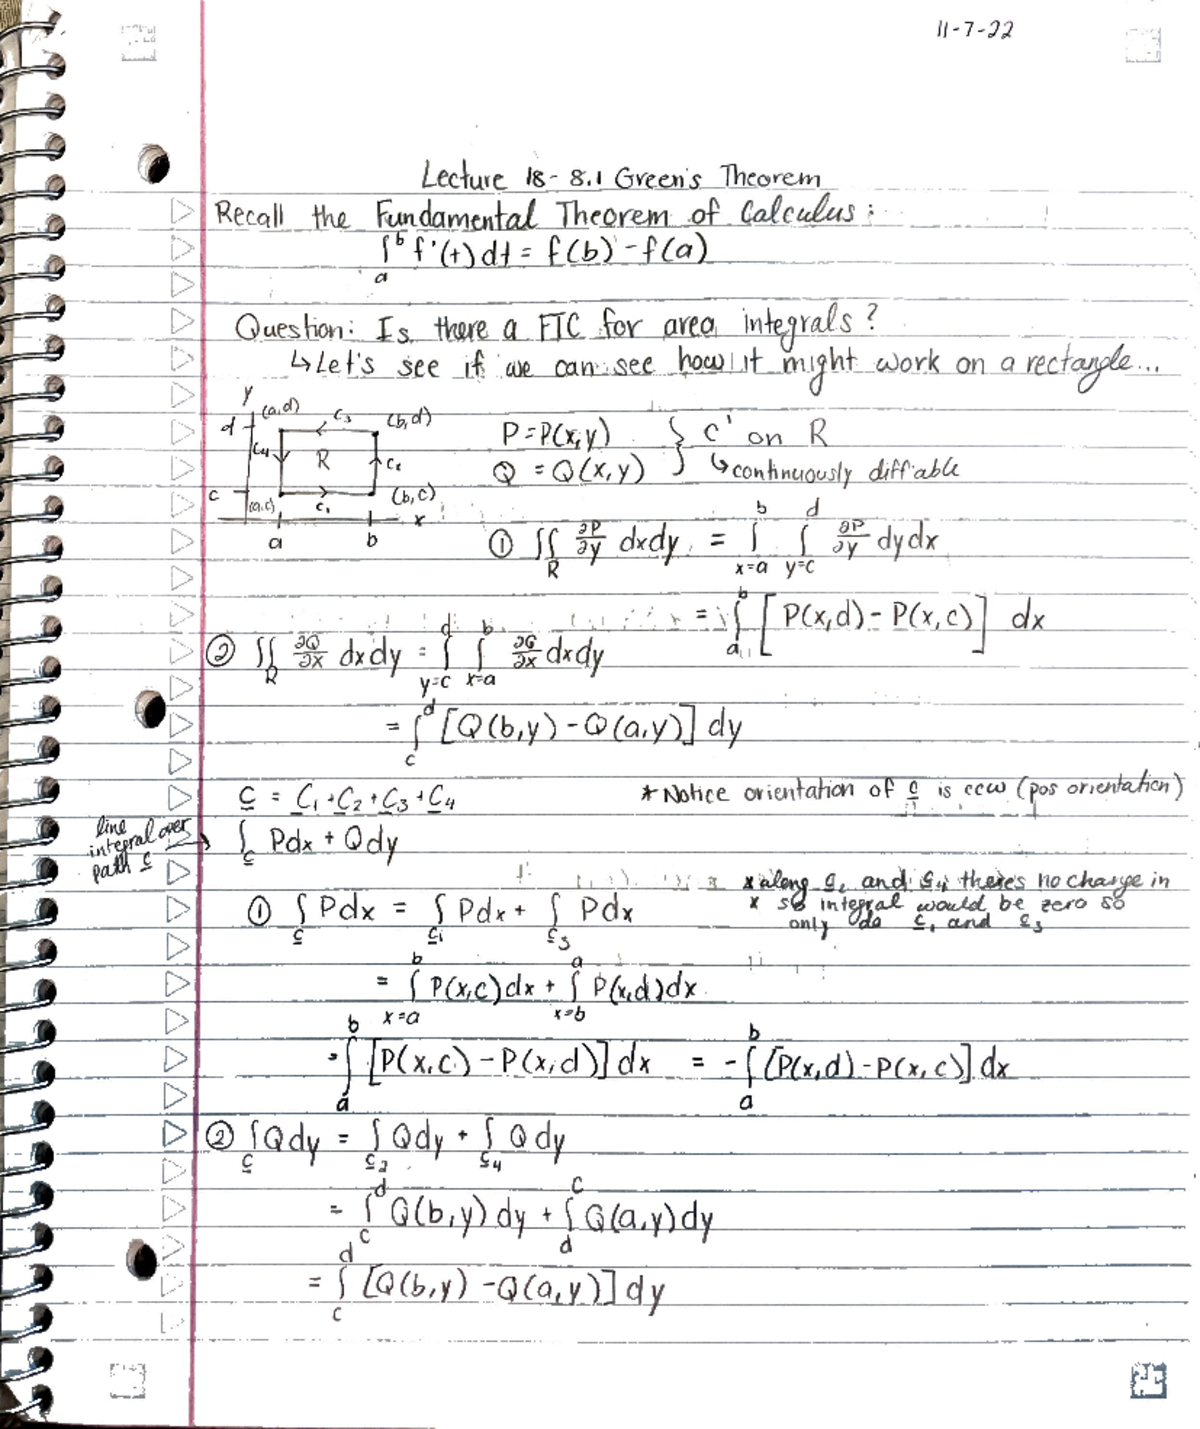 11-7-22
Lecture 18- 8.1 Green's Theorem
Recall the Fundamental Theorem of Calculus:
∫_a^b f'(t)dt = f(b) - f(a)
Question: Is there a FTC for area integrals?
↳ Let's see if we can see how it might work on a rectangle...
y
(a,d) c₃ (b,d)
d
c₄ R c₂
c (a,c) c₁ (b,c)
x
a b
P=P(x,y) } C' on R
Q = Q(x,y) } ↳ continuously diff'able
① ∬_R ∂P/∂y dxdy = ∫_{x=a}^b ∫_{y=c}^d ∂P/∂y dydx
= ∫_a^b [P(x,d) - P(x,c)] dx
② ∬_R ∂Q/∂x dxdy = ∫_{y=c}^d ∫_{x=a}^b ∂Q/∂x dxdy
= ∫_c^d [Q(b,y) - Q(a,y)] dy
C = C₁+C₂+C₃+C₄ * Notice orientation of c is ccw (pos orientation)
line integral over path c → ∫_c Pdx + Qdy
* along c₂ and c₄ there's no change in
x so integral would be zero so
only do c₁ and c₃
① ∫_c Pdx = ∫_{c₁} Pdx + ∫_{c₃} Pdx
= ∫_{x=a}^b P(x,c)dx + ∫_{x=b}^a P(x,d)dx
= ∫_a^b [P(x,c) - P(x,d)] dx = - ∫_a^b [P(x,d) - P(x,c)] dx
② ∫_c Qdy = ∫_{c₂} Qdy + ∫_{c₄} Qdy
= ∫_c^d Q(b,y) dy + ∫_d^c Q(a,y)dy
= ∫_c^d [Q(b,y) - Q(a,y)] dy